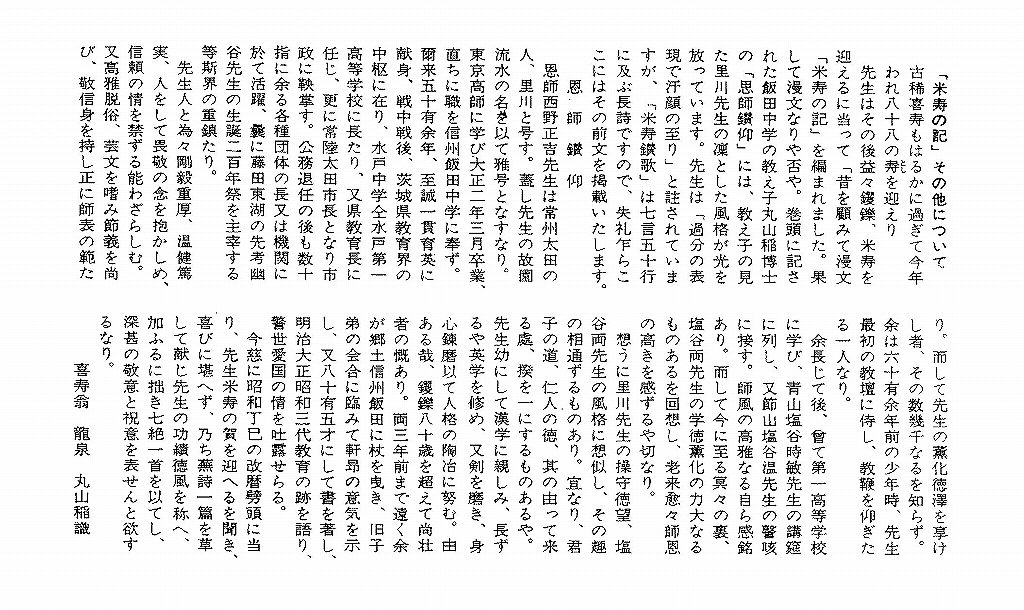 「米寿の記」その他について
古稀喜寿もはるかに過ぎて今年
われ八十八の寿を迎えり
先生はその後益々钁鑠、米寿を
迎えるに当って「昔を顧みて漫文
「米寿の記」を編まれました。果
して漫文なりや否や。巻頭に記さ
れた飯田中学の教え子丸山稲博士
の「恩師鑚仰」には、教え子の見
た里川先生の凜とした風格が光を
放っています。先生は「過分の表
現で汗顔の至り」と註されていま
すが、「米寿鑚歌」は七言五十行
に及ぶ長詩ですので、失礼乍らこ
こにはその前文を掲載いたします。
恩師鑚仰
恩師西野正吉先生は常州太田の
人、里川と号す。蓋し先生の故園
流水の名を以て雅号となすなり。
東京高師に学び大正二年三月卒業、
直ちに職を信州飯田中学に奉ず。
爾来五十有余年、至誠一貫育英に
献身、戦中戦後、茨城県教育界の
中枢に在り、水戸中学仝水戸第一
高等学校に長たり、又県教育長に
任じ、更に常陸太田市長となり市
政に鞅掌す。公務退任の後も数十
指に余る各種団体の長又は機関に
於て活躍、曩に藤田東湖の先考幽
谷先生の生誕二百年祭を主宰する
等斯界の重鎮たり。
先生人と為々剛毅重厚、温健篤
実、人をして畏敬の念を抱かしめ、
信頼の情を禁ずる能わざらしむ。
又高雅脱俗、芸文を嗜み節義を尚
び、敬信身を持し正に師表の範た
り。而して先生の薫化徳澤を享け
し者、その数幾千なるを知らず。
余は六十有余年前の少年時、先生
最初の教壇に侍し、教鞭を仰ぎた
る一人なり。
余長じて後、曾て第一高等学校
に学び、青山塩谷時敏先生の講筵
に列し、又節山塩谷温先生の謦咳
に接す。師風の高雅なる自ら感銘
あり。而して今に至る冥々の裏、
塩谷両先生の学徳薫化の力大なる
ものあるを回想し、老来愈々師恩
の高きを感ずるや切なり。
想うに里川先生の操守徳望、塩
谷両先生の風格に想似し、その趣
の相通ずるものあり。宜なり、君
子の道、仁人の徳、其の由って来
る處、揆を一にするものあるや。
先生幼にして漢学に親しみ、長ず
るや英学を修め、又剣を磨き、身
心錬磨以て人格の陶冶に努む。由
ある哉、钁鑠八十歳を超えて尚壮
者の慨あり。両三年前まで遠く余
が郷土信州飯田に杖を曳き、旧子
弟の会合に臨みて軒昂の意気を示
し、又八十有五才にして書を著し、
明治大正昭和三代教育の跡を語り、
警世愛国の情を吐露せらる。
今慈に昭和丁巳の改暦劈頭に当
り、先生米寿の賀を迎へるを聞き、
喜びに堪へず、乃ち蕪詩一篇を草
して献じ先生の功績徳風を称へ、
加ふるに拙き七絶一首を以てし、
深甚の敬意と祝意を表せんと欲す
るなり。
喜寿翁　龍泉　丸山稲識